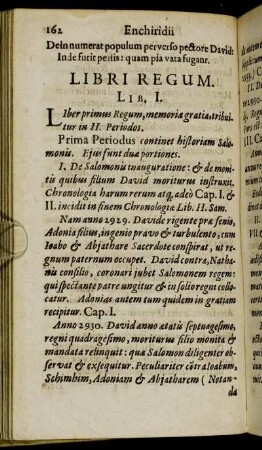 162 Enchiridii
Dein numerat populum perverso pectore David:
Inde furit pestis: quam pia vota fugant.
LIBRI REGUM.
LIB. I.
Liber primus Regum, memoria gratia, tribui-
tur in II. Periodos.
Prima Periodus continet historiam Salo-
monis. Ejus sunt duæ portiones.
I. De Salomonis inauguratione: & de moni-
tis quibus filium David moriturus instruxit.
Chronologia harum rerum atq; adeò Cap. I. &
II. incidit in finem Chronologiæ Lib. II. Sam.
Nam anno 2929. Davide rigente præ senio,
Adonia filius, ingenio pravo & turbulento, cum
Ioabo & Abjathare Sacerdote conspirat, ut re-
gnum paternum occupet. David contrà, Natha-
nis consilio, coronari jubet Salomonem regem:
qui spectante patre ungitur & in solio regni collo-
catur. Adonias autem tum quidem in gratiam
recipitur. Cap. I.
Anno 2930. David anno ætatis septuagesimo,
regni quadragesimo, moriturus filio monita &
mandata relinquit: quæ Salomon diligenter ob-
servat & exsequitur. Peculiariter côtra Ioabum,
Schimhim, Adoniam & Abjatharem (Notan-
da